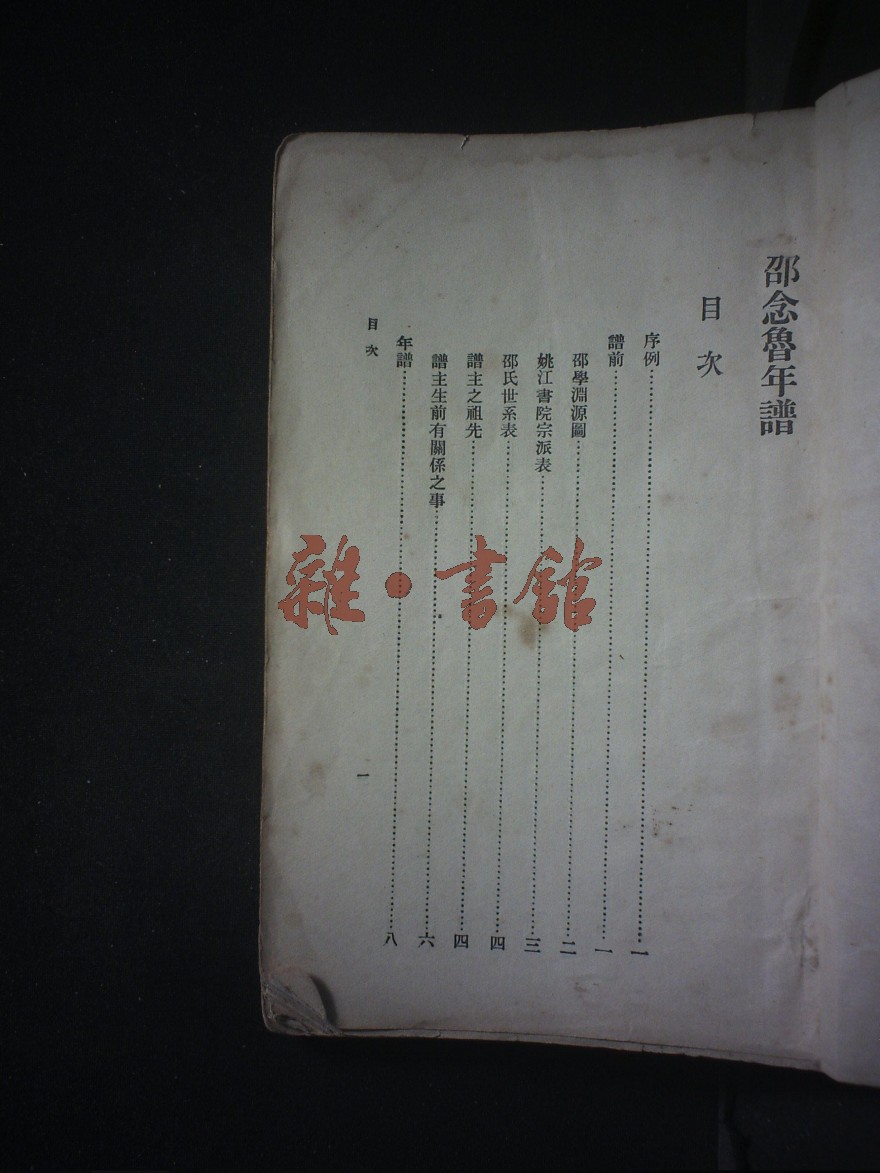 邵念魯年譜
目次
序例……一
譜前……一
邵學淵源圖……二
姚江書院宗派表……三
邵氏世系表……四
譜主之祖先……四
譜主生前有關係之事……六
年譜……八
目次
一
雜·書館